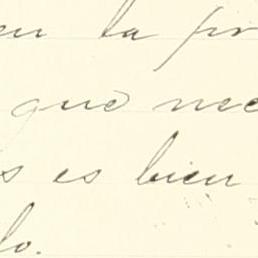 en la pr
que nece
s es bien
lo.